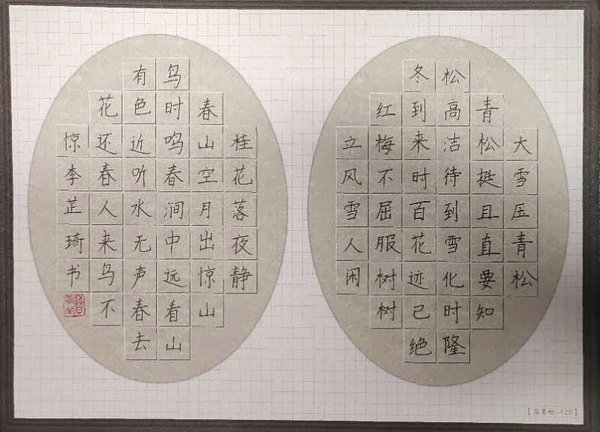 大雪压青松
青松挺且直要知
松高洁待到雪化时隆
冬到来时百花迹已绝
红梅不屈服树树
立风雪人闲
桂花落夜静
春山空月出惊山
鸟时鸣春涧中远看山
有色近听水无声春去
花还春人来鸟不
惊李芷琦书